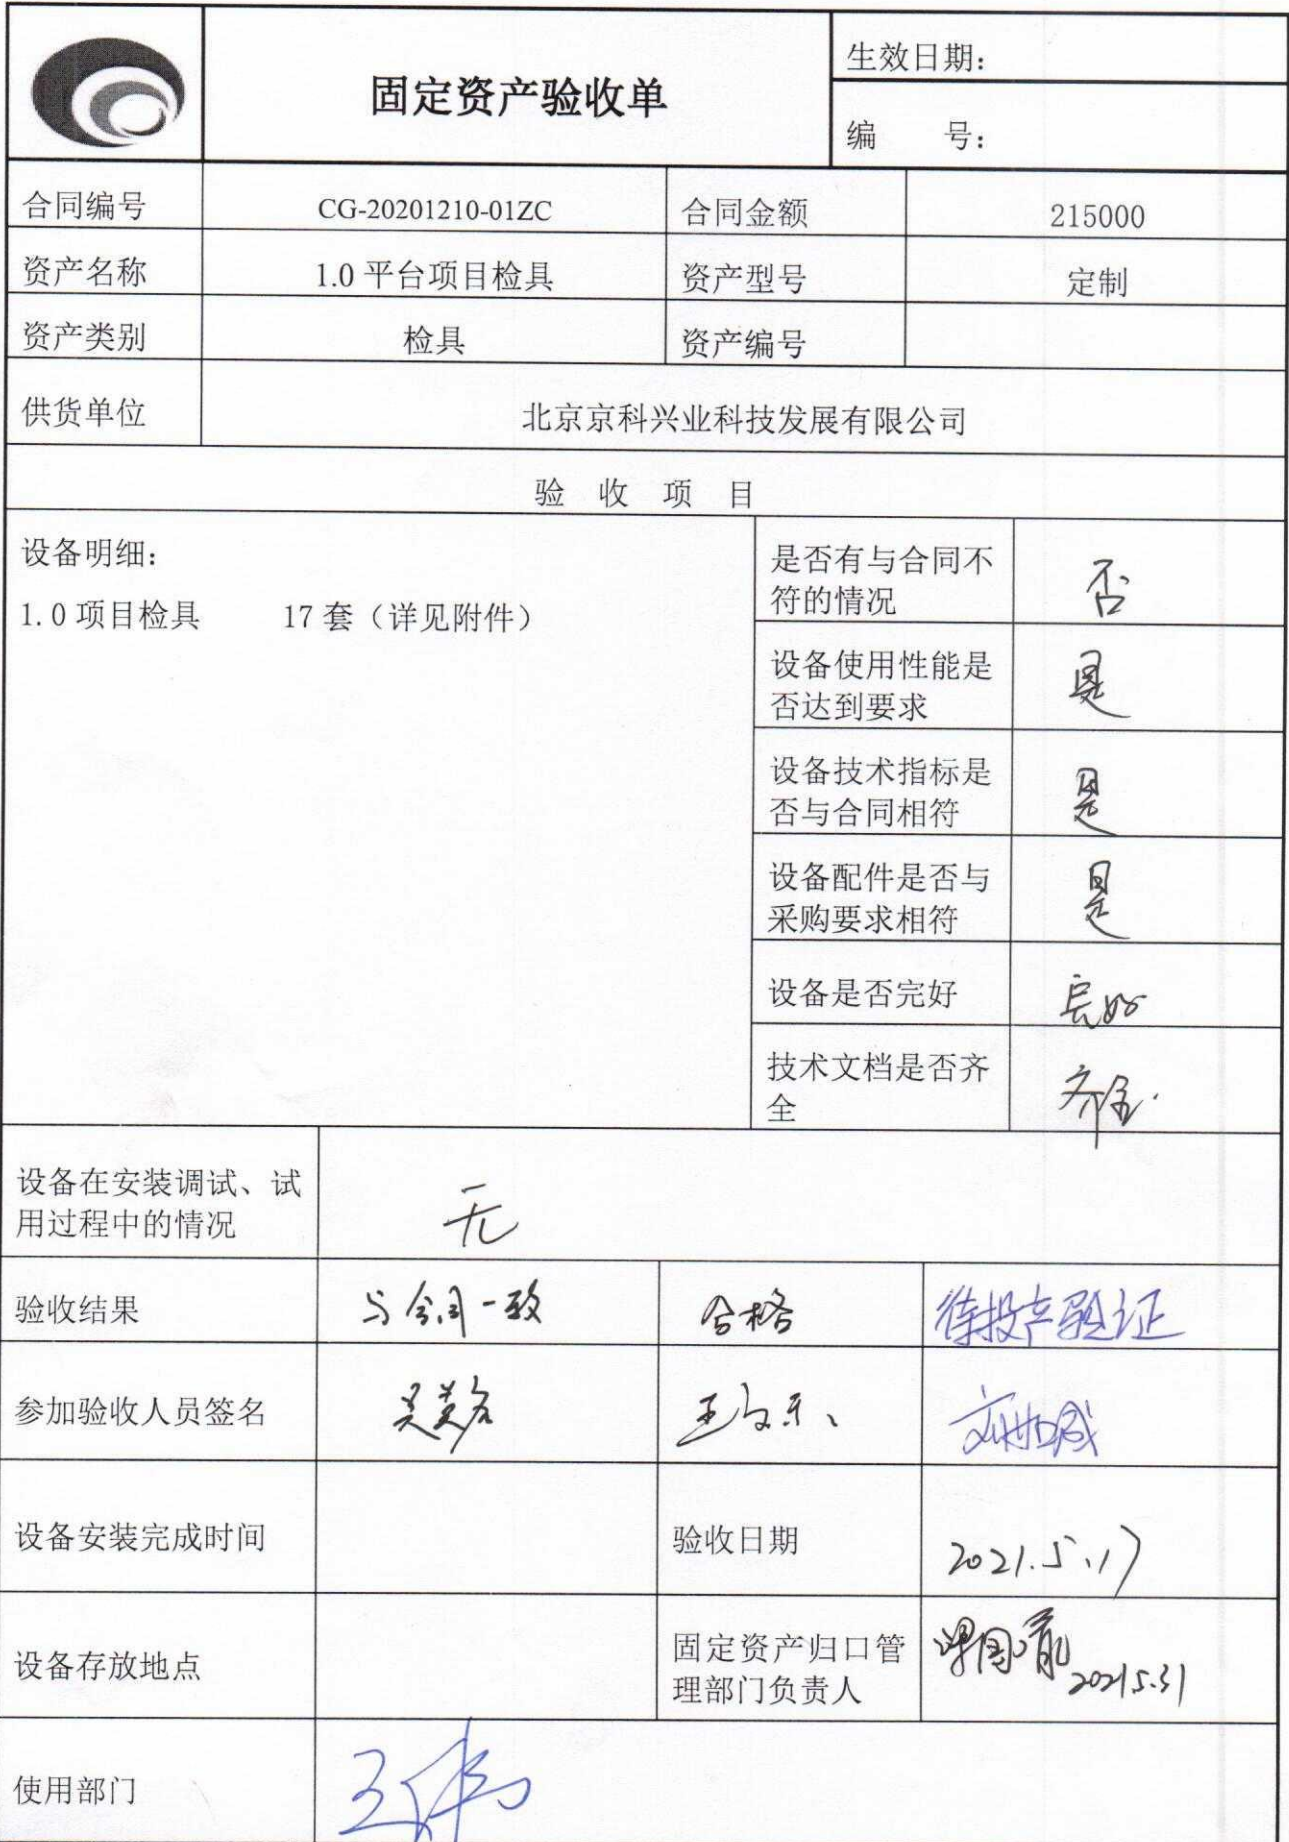 固定资产验收单
生效日期：
编　　号：
合同编号 CG-20201210-01ZC 合同金额 215000
资产名称 1.0 平台项目检具 资产型号 定制
资产类别 检具 资产编号
供货单位 北京京科兴业科技发展有限公司
验 收 项 目
设备明细：
1.0 项目检具 17 套（详见附件）
是否有与合同不
符的情况
否
设备使用性能是
否达到要求
是
设备技术指标是
否与合同相符
是
设备配件是否与
采购要求相符
是
设备是否完好
良好
技术文档是否齐
全
齐全.
设备在安装调试、试
用过程中的情况
无
验收结果 与合同一致 合格 待投产验证
参加验收人员签名
设备安装完成时间 验收日期 2021.5.17
设备存放地点
固定资产归口管
理部门负责人
2021.5.31
使用部门 王伟